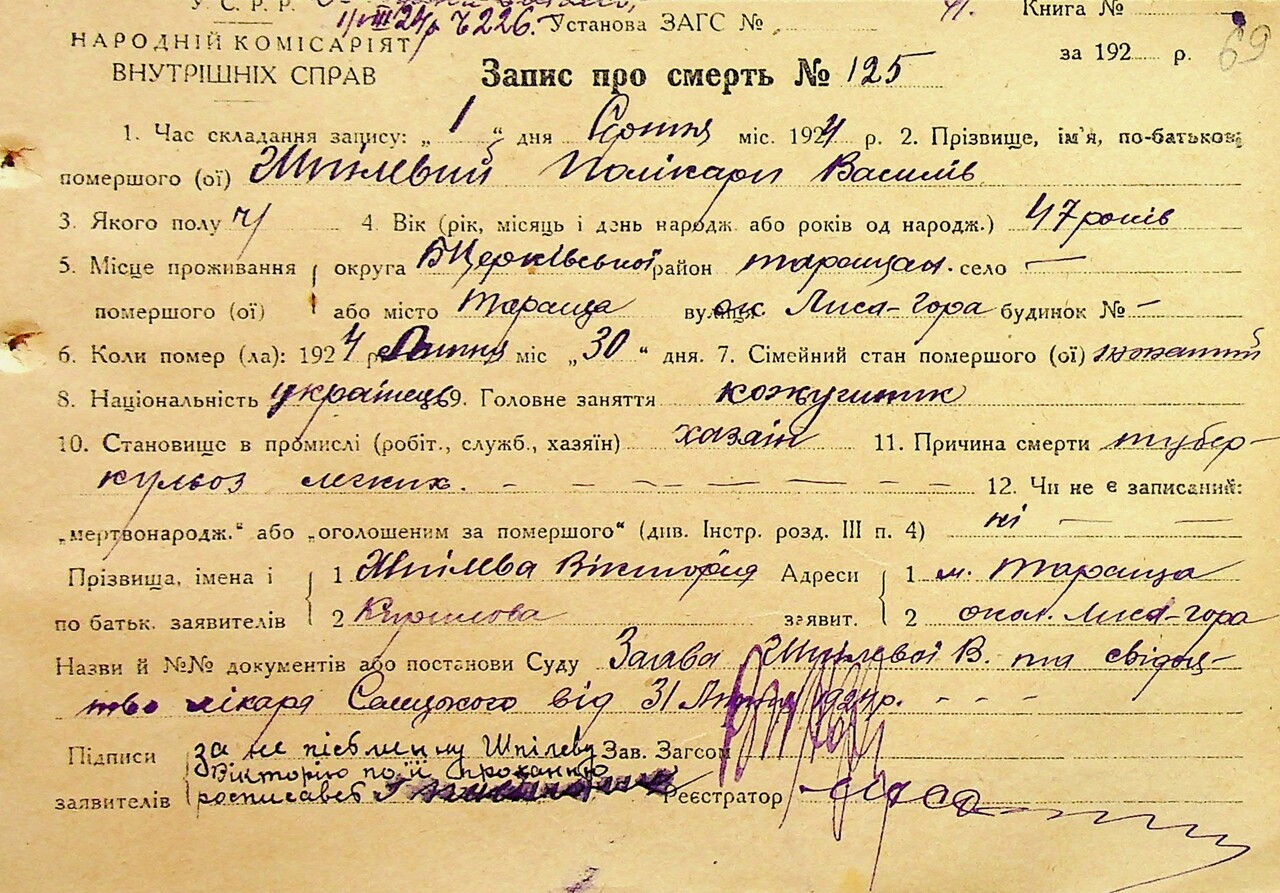 У. С. Р. Р.
1/VIII 24р Ч 226. Установа ЗАГС № Книга №
НАРОДНІЙ КОМІСАРІЯТ
ВНУТРІШНІХ СПРАВ
за 192 р. 69
Запис про смерть № 125
1. Час складання запису: „ 1 “ дня Серпня міс. 1924 р. 2. Прізвище, ім'я, по-батькові
помершого (ої) Шпілевий Полікарп Василів
3. Якого полу ч 4. Вік (рік, місяць і день народж. або років од народж.) 47 років
5. Місце проживання округа БЦерківської район таращан. село —
помершого (ої) або місто Тараща вулиця ок. Лиса-гора будинок № —
6. Коли помер (ла): 1924 р Липня міс „ 30 “ дня. 7. Сімейний стан помершого (ої) жонатий
8. Національність українець 9. Головне заняття кожушник
10. Становище в промислі (робіт., служб., хазяїн) хазаін 11. Причина смерти тубер-
кульоз легких. — — — — — 12. Чи не є записаний:
„мертвонародж.“ або „оголошеним за помершого“ (див. Інстр. розд. III п. 4) ні — — —
Прізвища, імена і 1 Шпілева Вікторія Адреси 1 м. Тараща
по батьк. заявителів 2 Кирилова заявит. 2 окол. Лиса-гора
Назви й №№ документів або постанови Суду Заява Шпілевої В. та свідоц-
тво лікаря від 31 Липня 1924 р. - - -
Підписи за не písьменну Шпілеву Зав. Загсом
Вікторію по її проханню
заявителів росписався Реєстратор